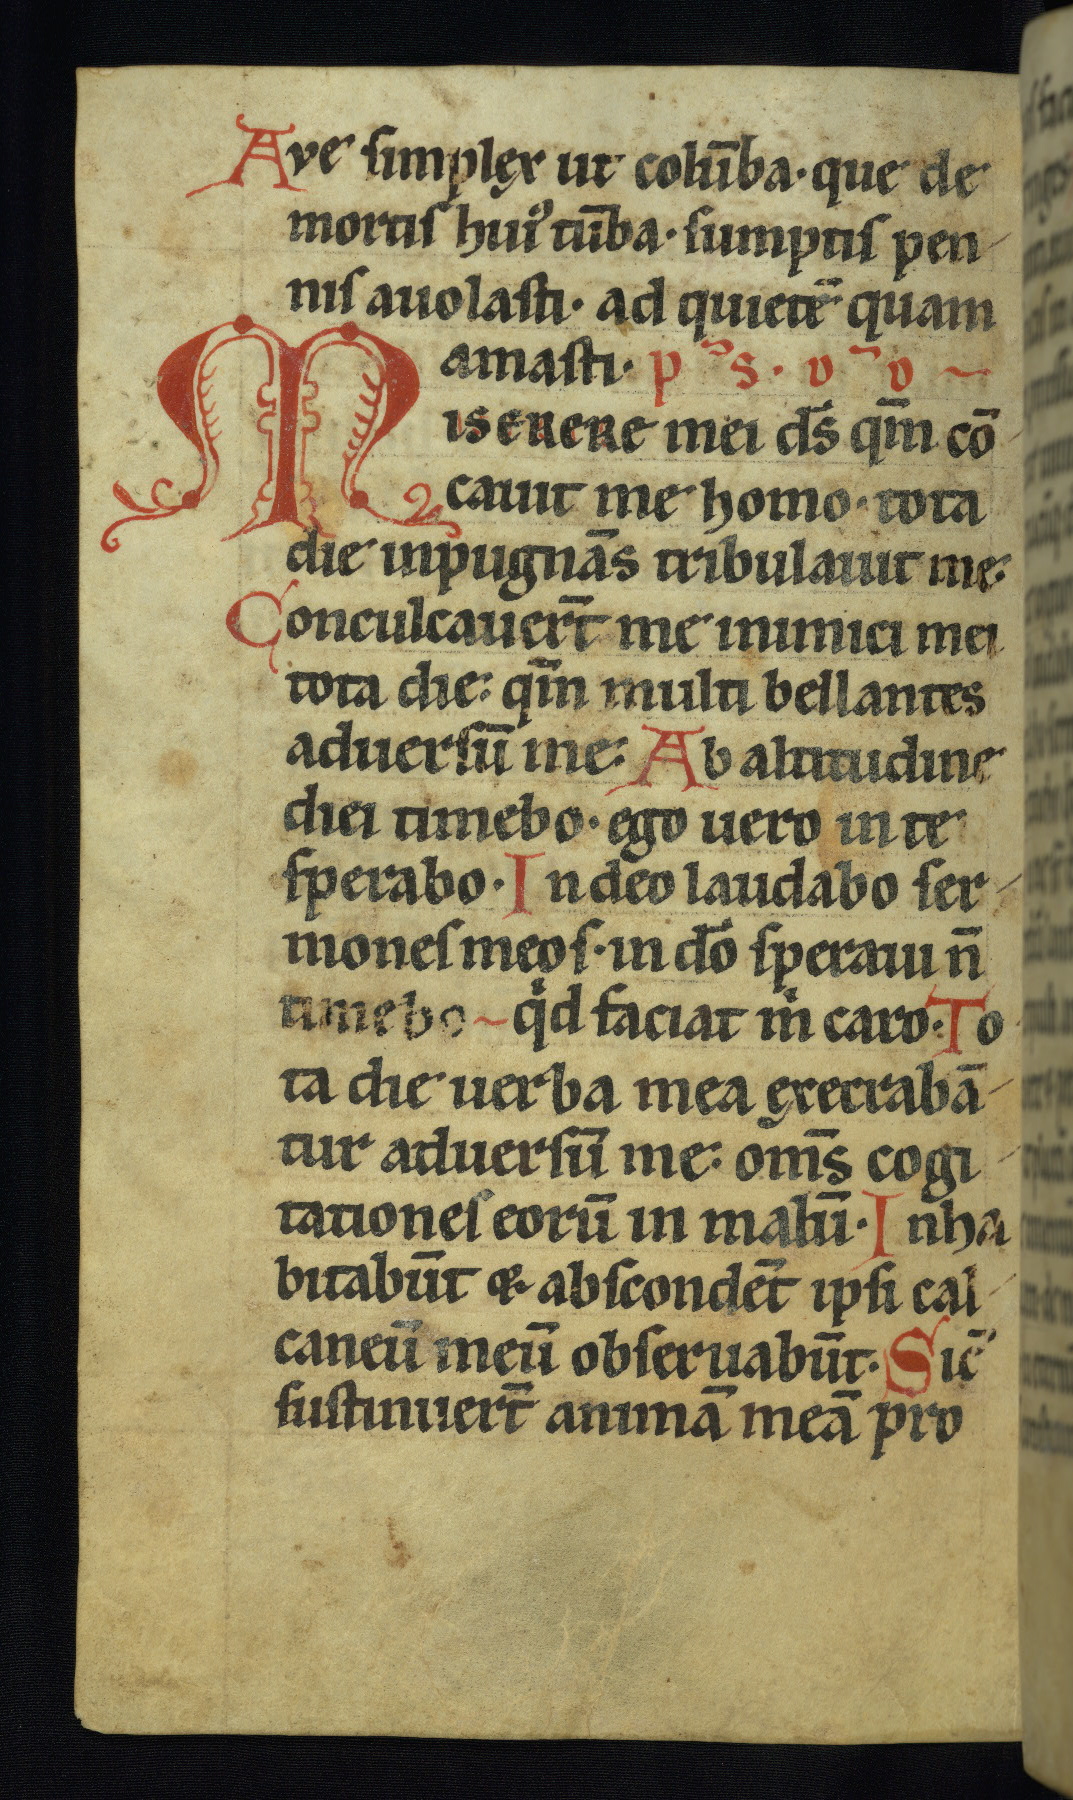 Ave simplex ut colūba· que de
mortis huiꝰ tūba· sumptis pen
nis auolasti· ad quietē quam
amasti· p̃s· v̄v
Miserere mei ds̄ qm̄ cō
cauit me homo· tota
die inpugnās tribulauit me:
Conculcauert̄ me inimici mei
tota die: qm̄ multi bellantes
aduersū me: Ab altitudine
diei timebo· ego uero in te
sperabo· In deo laudabo ser
mones meos· in dō speraui n̄
timebo qͥd faciat mͥ caro· To
ta die uerba mea execrabā
tur aduersū me: om̄s cogi
tationes eorū in malū· Inha
bitabūt & abscondēt ipsi cal
caneū meū obseruabūt· Sic̄
sustinuert̄ animā meā pro